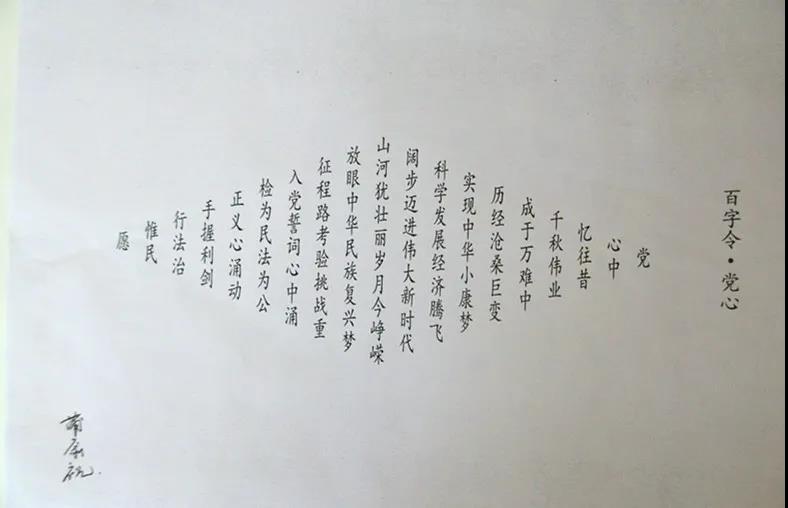 百字令·党心
党
心中
忆往昔
千秋伟业
成于万难中
历经沧桑巨变
实现中华小康梦
科学发展经济腾飞
阔步迈进伟大新时代
山河犹壮丽岁月今峥嵘
放眼中华民族复兴梦
征程路考验挑战重
入党誓词心中涌
检为民法为公
正义心涌动
手握利剑
行法治
惟民
愿